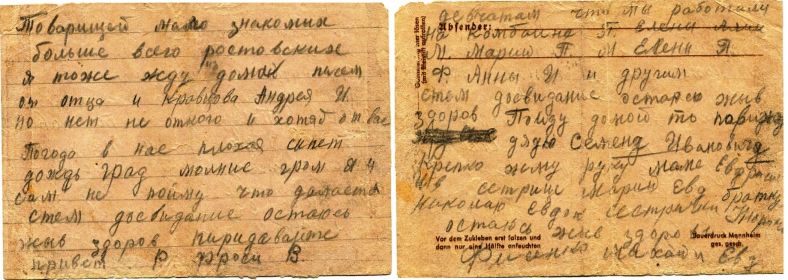 Товарищей мало знакомих
больше всего ростовских
я тоже жду из дома писем
от отца и Кравцова Андрея И.
но нет не отного и хотяб от вас
Погода в нас плохая
дождь град молние гром я
сам не пойму что делается
стем досвидание остаюсь
жыв здоров пиридавайте
привет Р Фроси В
девчатам что мы работали
на комбаине П. Елени
М. Марии П. М Елени П.
Ф Анны И и другим
стем досвидание остаюсь жыв
здоров Пойду домой то
дядю Семена Ивановича
крепко жму руку маме
сестрице Марии Евд братку
Николаю Евдок сестрички
остаюсь жыв здоров
Михаил Евд
Absender:
Vor dem Zukleben erst falzen und
dann nur eine Hälfte anfeuchten
Sauerdruck Mannheim
ges. gesch.